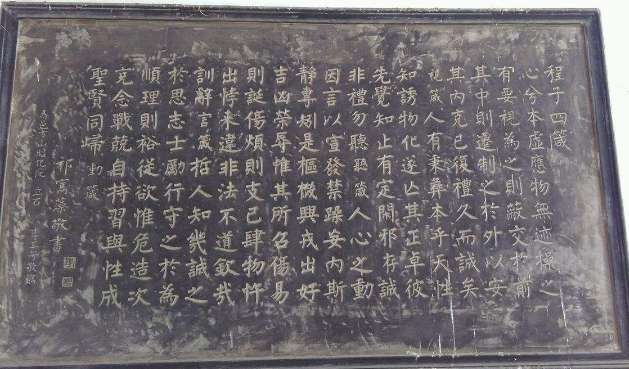 程子四箴
心兮本虛應物無迹操之
有要視為之則蔽交於前
其中則遷制之於外以安
其内克己復禮久而誠矣
視箴人有秉彝本乎天性
知誘物化遂亡其正卓彼
先覺知止有定閑邪存誠
非禮勿聽聽箴人心之動
因言以宣發禁躁妄内斯
静專矧是樞機興戎出好
吉凶榮辱惟其所召傷易
則誕傷煩則支己肆物忤
出悖來違非法不道欽哉
訓辭言箴哲人知幾誠之
於思志士勵行守之於為
順理則裕從欲惟危造次
克念戰兢自持習與性成
聖賢同歸動箴
敬書